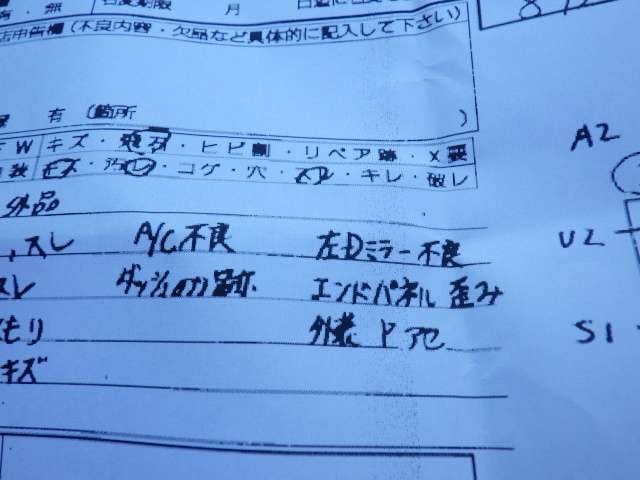 有・無 月
店申告欄(不良内容・欠品など具体的に記入して下さい)
有 (箇所 )
A2
FW キズ・飛石・ヒビ割・リペア跡・X要
キズ・汚レ・コゲ・穴・スレ・キレ・破レ
外品
スレ A/C不良 左Dミラー不良
U2
スレ ダッシュのり跡 エンドパネル歪み
もり 外装ドアセ
S1
キズ